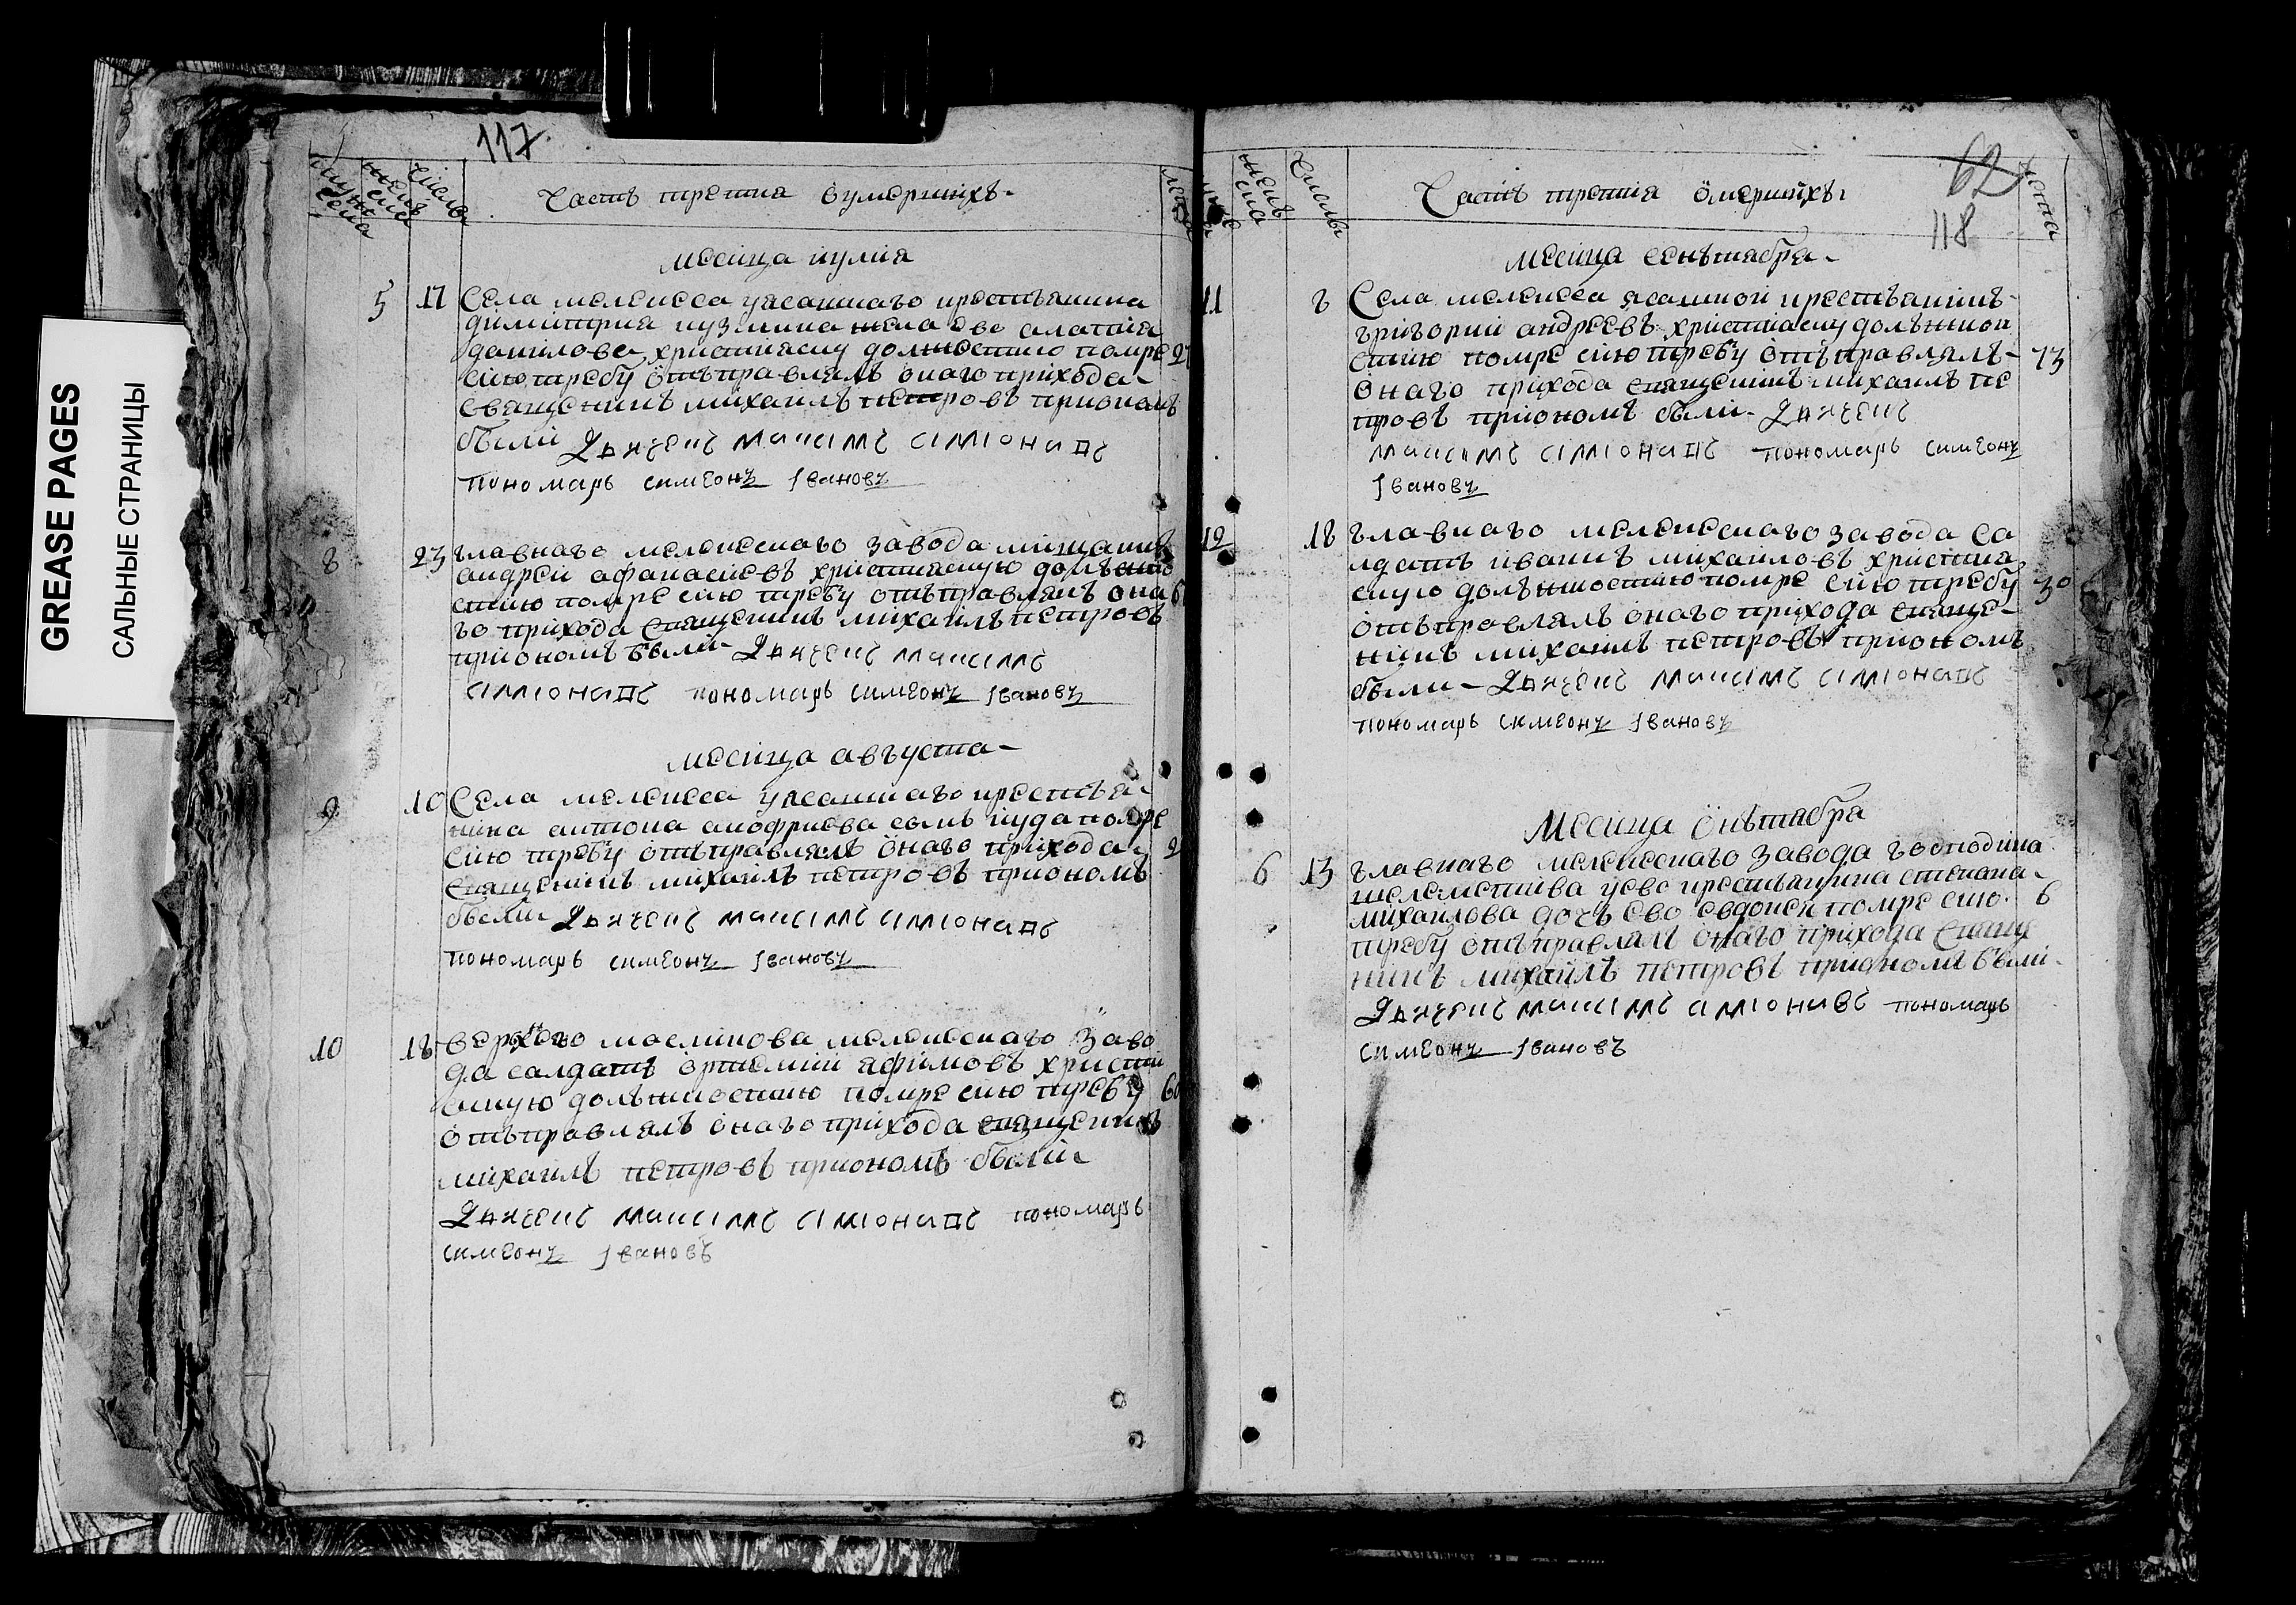 GREASE PAGES
САЛЬНЫЕ СТРАНИЦЫ
117
мужеска
женска
числа
Часть третиа оумершихъ
лета
месица иулиа
5 17 Села мелекесса уясашнаго крестьянина
димитрия кузмина жена ево
данилова христианску должностию помре 27
сию требу отъправлялъ онаго прихода
священникъ михаилъ петровъ приномъ
были Дьячекъ Максимъ Симионовъ
пономарь симеонъ Ивановъ
8 23 главнаго мелекескаго завода
андреи афанасиевъ христианскую должно
стию помре сию требу отъправлялъ она
го прихода священникъ михаилъ петровъ
приономъ были Дьячекъ Максимъ
Симионовъ пономарь симеонъ Ивановъ
месица августа
9 10 Села мелекесса уясашнаго крестья
нина антона анофриева сынъ иуда помре
сию требу отъправлялъ онаго прихода 2
священникъ михаилъ петровъ приономъ
были Дьячекъ Максимъ Симионовъ
пономарь симеонъ Ивановъ
10 18 мелекескаго заво
да салдатъ артемии ефимовъ христиа
нскую долъжностию помре сию требу 60
отъправлялъ онаго прихода священникъ
михаилъ петровъ приономъ были
Дьячекъ Максимъ Симионовъ пономарь
симеонъ Ивановъ
62
118
женска
числа
Часть третиа омершихъ
лета
месица сенътября
11 8 Села мелекесса ясашнои крестьянинъ
григории андреевъ христианску долъжнон
стию помре сию требу отъправлялъ 73
онаго прихода священникъ михаилъ пе
тровъ приономъ были Дьячекъ
Максимъ Симионовъ пономарь симеонъ
Ивановъ
12 18 главнаго мелекескаго завода са
лдатъ иванъ михаиловъ христиа
нскую долъжностию помре сию требу 30
отъправлялъ онаго прихода свяще
никъ михаилъ петровъ приономъ
были Дьячекъ Максимъ Симионовъ
пономарь симеонъ Ивановъ
Месица онътября
6 13 главнаго мелекескаго завода господина
крестьянина степана
михаилова дочь ево евдокея помре сию 6
требу отъправлялъ онаго прихода свяще
никъ михаилъ петровъ приономъ были
Дьячекъ Максимъ Симионовъ пономарь
симеонъ Ивановъ